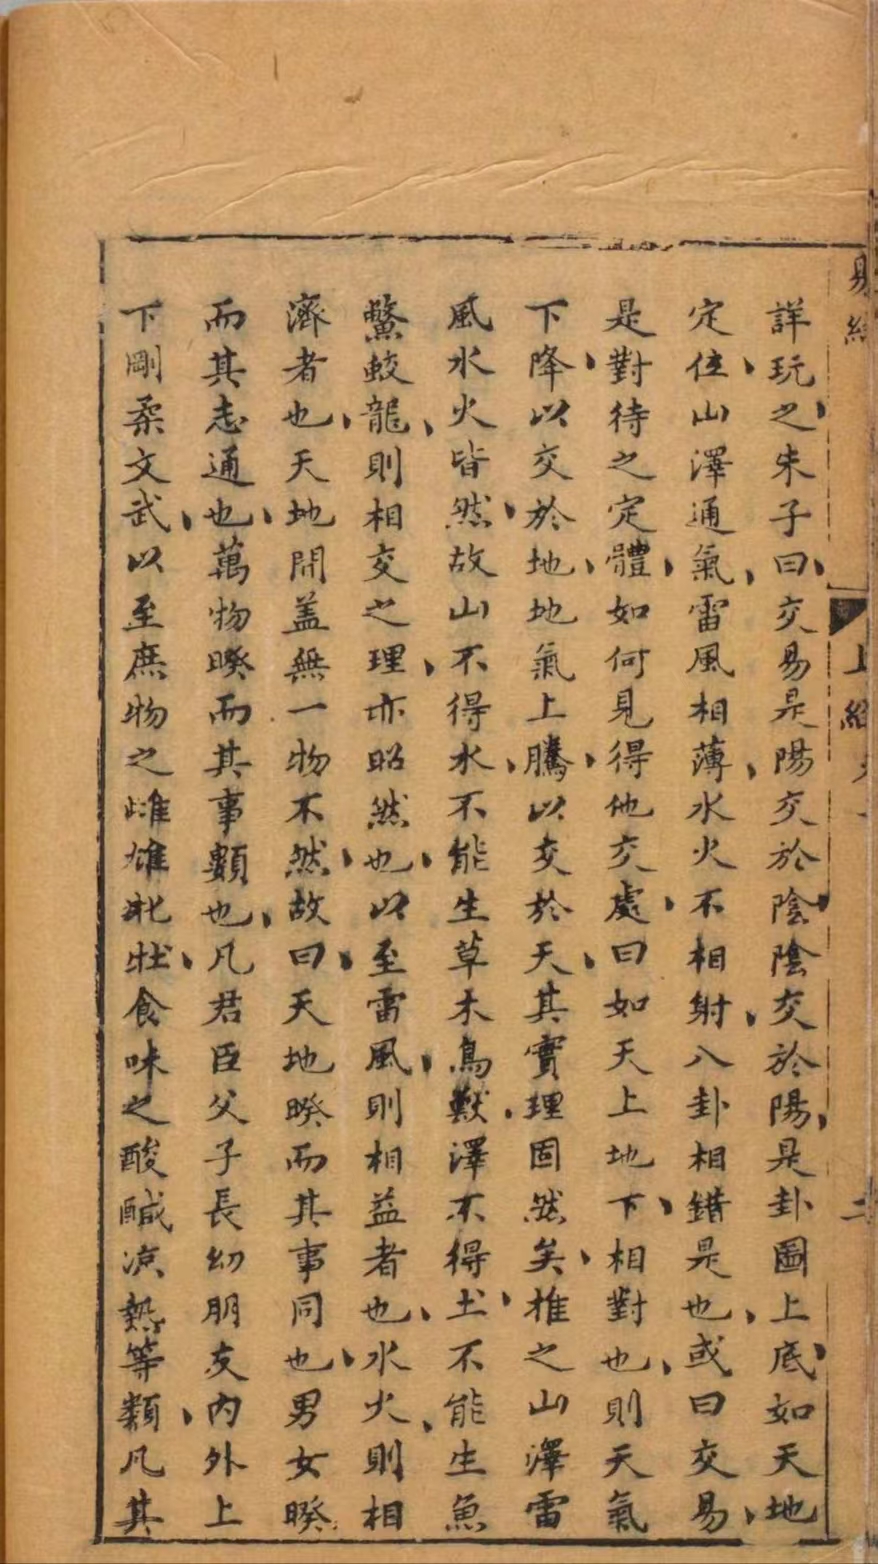 易經
上經
二
詳玩之朱子曰交易是陽交於陰陰交於陽是卦圖上底如天地
定位山澤通氣雷風相薄水火不相射八卦相錯是也或曰交易
是對待之定體如何見得他交處曰如天上地下相對也則天氣
下降以交於地地氣上騰以交於天其實理固然矣推之山澤雷
風水火皆然故山不得水不能生草木鳥獸澤不得土不能生魚
鱉蛟龍則相交之理亦昭然也以至雷風則相益者也水火則相
濟者也天地開盖無一物不然故曰天地睽而其事同也男女睽
而其志通也萬物睽而其事類也凡君臣父子長幼朋友內外上
下剛柔文武以至庶物之雌雄牝牡食味之酸鹹凉熱等類凡其